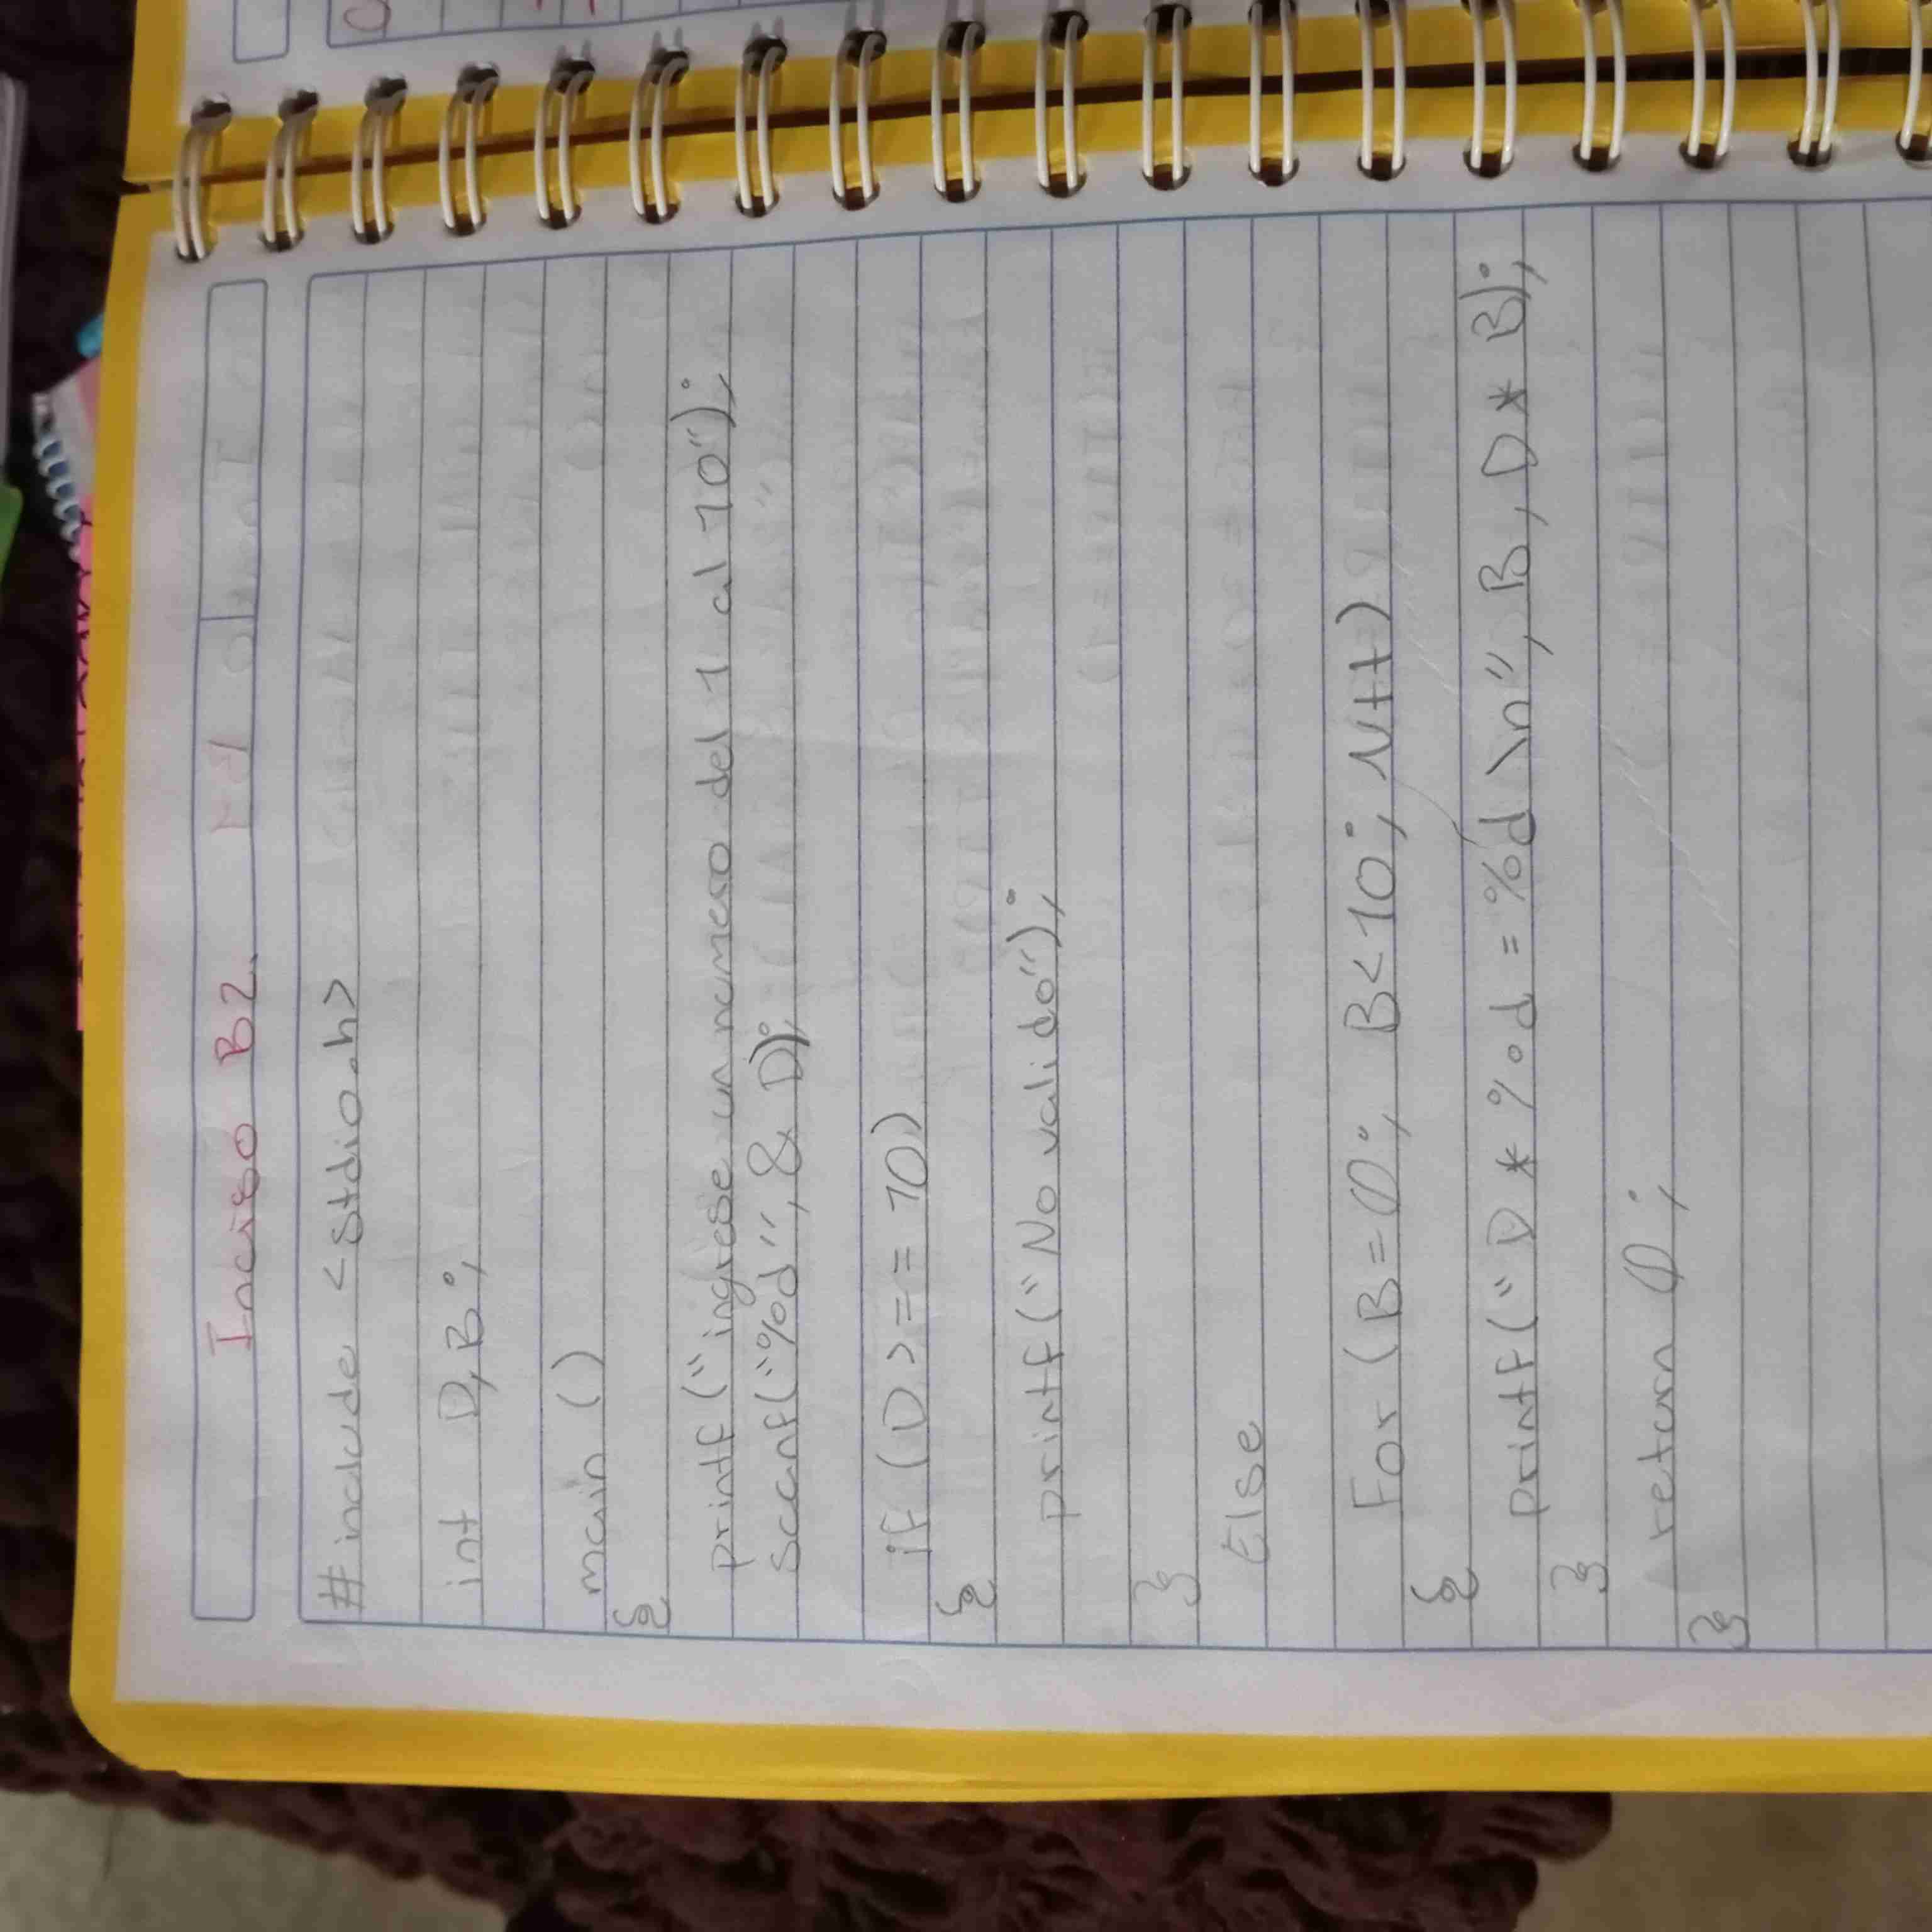 Inciso B2.
#include <stdio.h>
int D,B;
main ()
{
printf ("ingrese un numero del 1 al 10");
Scanf("%d",& D);
if (D >== 10)
{
printf ("No valido");
}
Else
For (B=0; B<10; N++)
{
printf("D * %d = %d \n", B, D * B);
}
return 0;
}